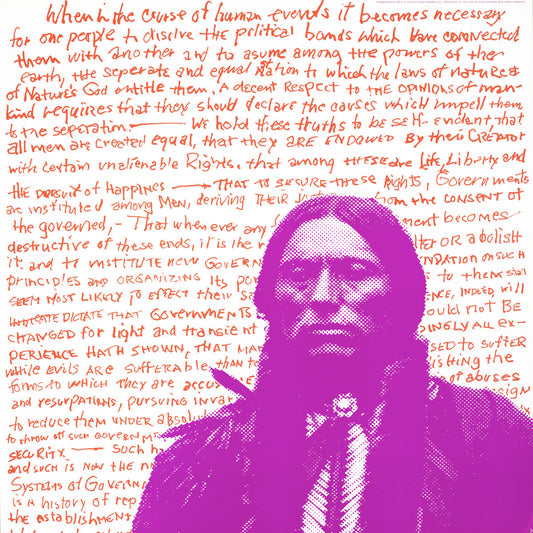 When in the course of human events it becomes necessary
for one people to disolve the political bands which have connected
them with another and to asume among the powers of the
earth, the seperate and equal station to which the laws of nature &
of Nature's God entitle them, A decent Respect to the opinions of man-
kind requires that they should declare the causes which impell them
to the seperation. — We hold these truths to be self-evident, that
all men are created equal, that they are endowed by their Creator
with certain unalienable Rights, that among these are Life, Liberty and
the pursuit of Happines — That to secure these Rights, Governments
are instituted among Men, deriving their from the consent of
the governed, - That when ever any ment becomes
destructive of these ends, it is the r lter or abolish
it. and to institute new Govern ndation on such
principles and organizing its po to them shall
seem most likely to effect their sa ence, indeed, will
dictate that Governments ould not be
changed for light and transient ingly all ex-
perience hath shown, that man sed to suffer
while evils are sufferable, than to lishing the
forms to which they are accus of abuses
and resurpations, pursuing invar sign
to reduce them under absolut
to throw off such governm
security — such h
and such is now the n
Systems of Governm
is a history of rep
the establishment